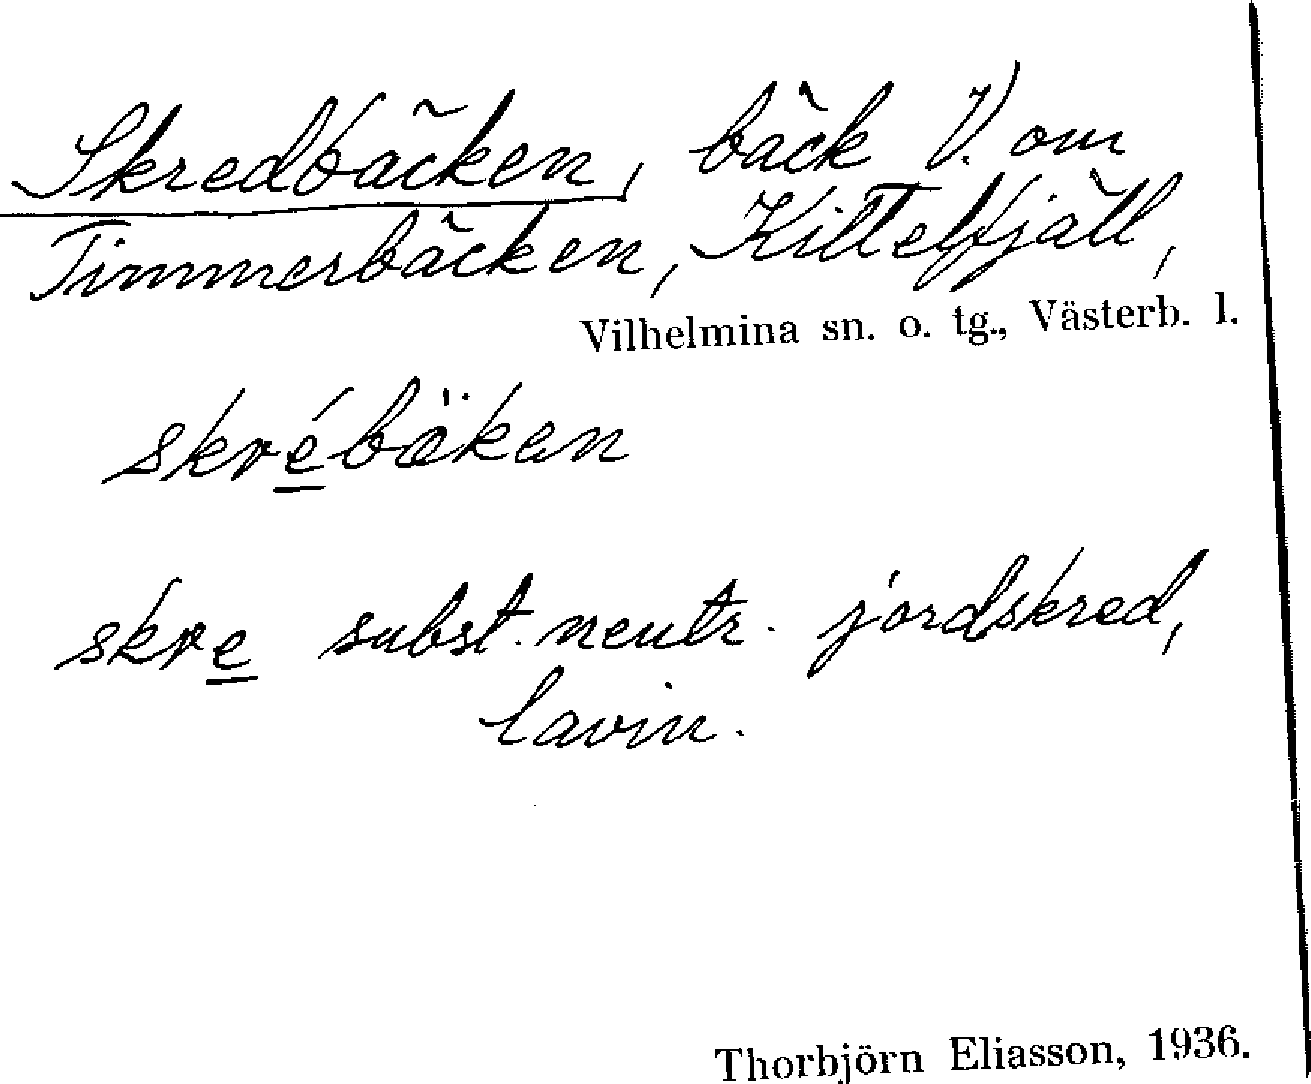 Skredbäcken, bäck V. om
Timmerbäcken, Kittelfjäll,
Vilhelmina sn. o. tg., Västerb. l.
skrébäkan
skre subst. neutr. jordskred,
lavin.
Thorbjörn Eliasson, 1936.